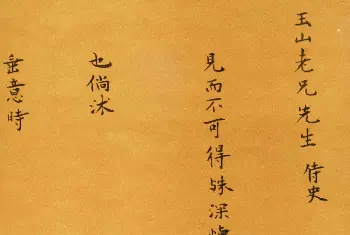 玉山老兄先生侍史
見而不可得殊深悵
也倘沭
垂意時